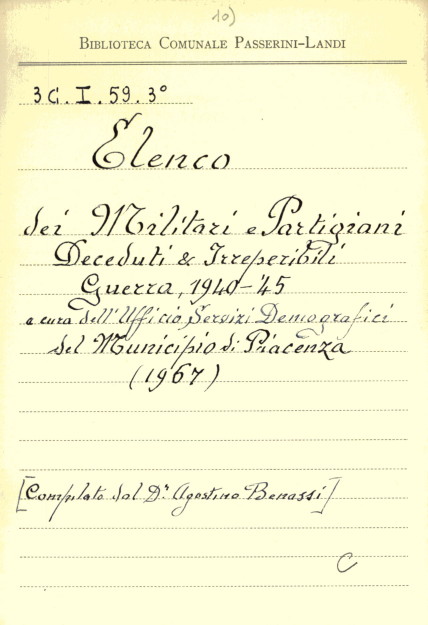 10)
BIBLIOTECA COMUNALE PASSERINI-LANDI
3C.I.59.3°
Elenco
dei Militari e Partigiani
Deceduti & Irreperibili
Guerra, 1940-'45
a cura dell'Ufficio Servizi Demografici
del Municipio di Piacenza
(1967)
[Compilato dal Dr. Agostino Benassi]
C